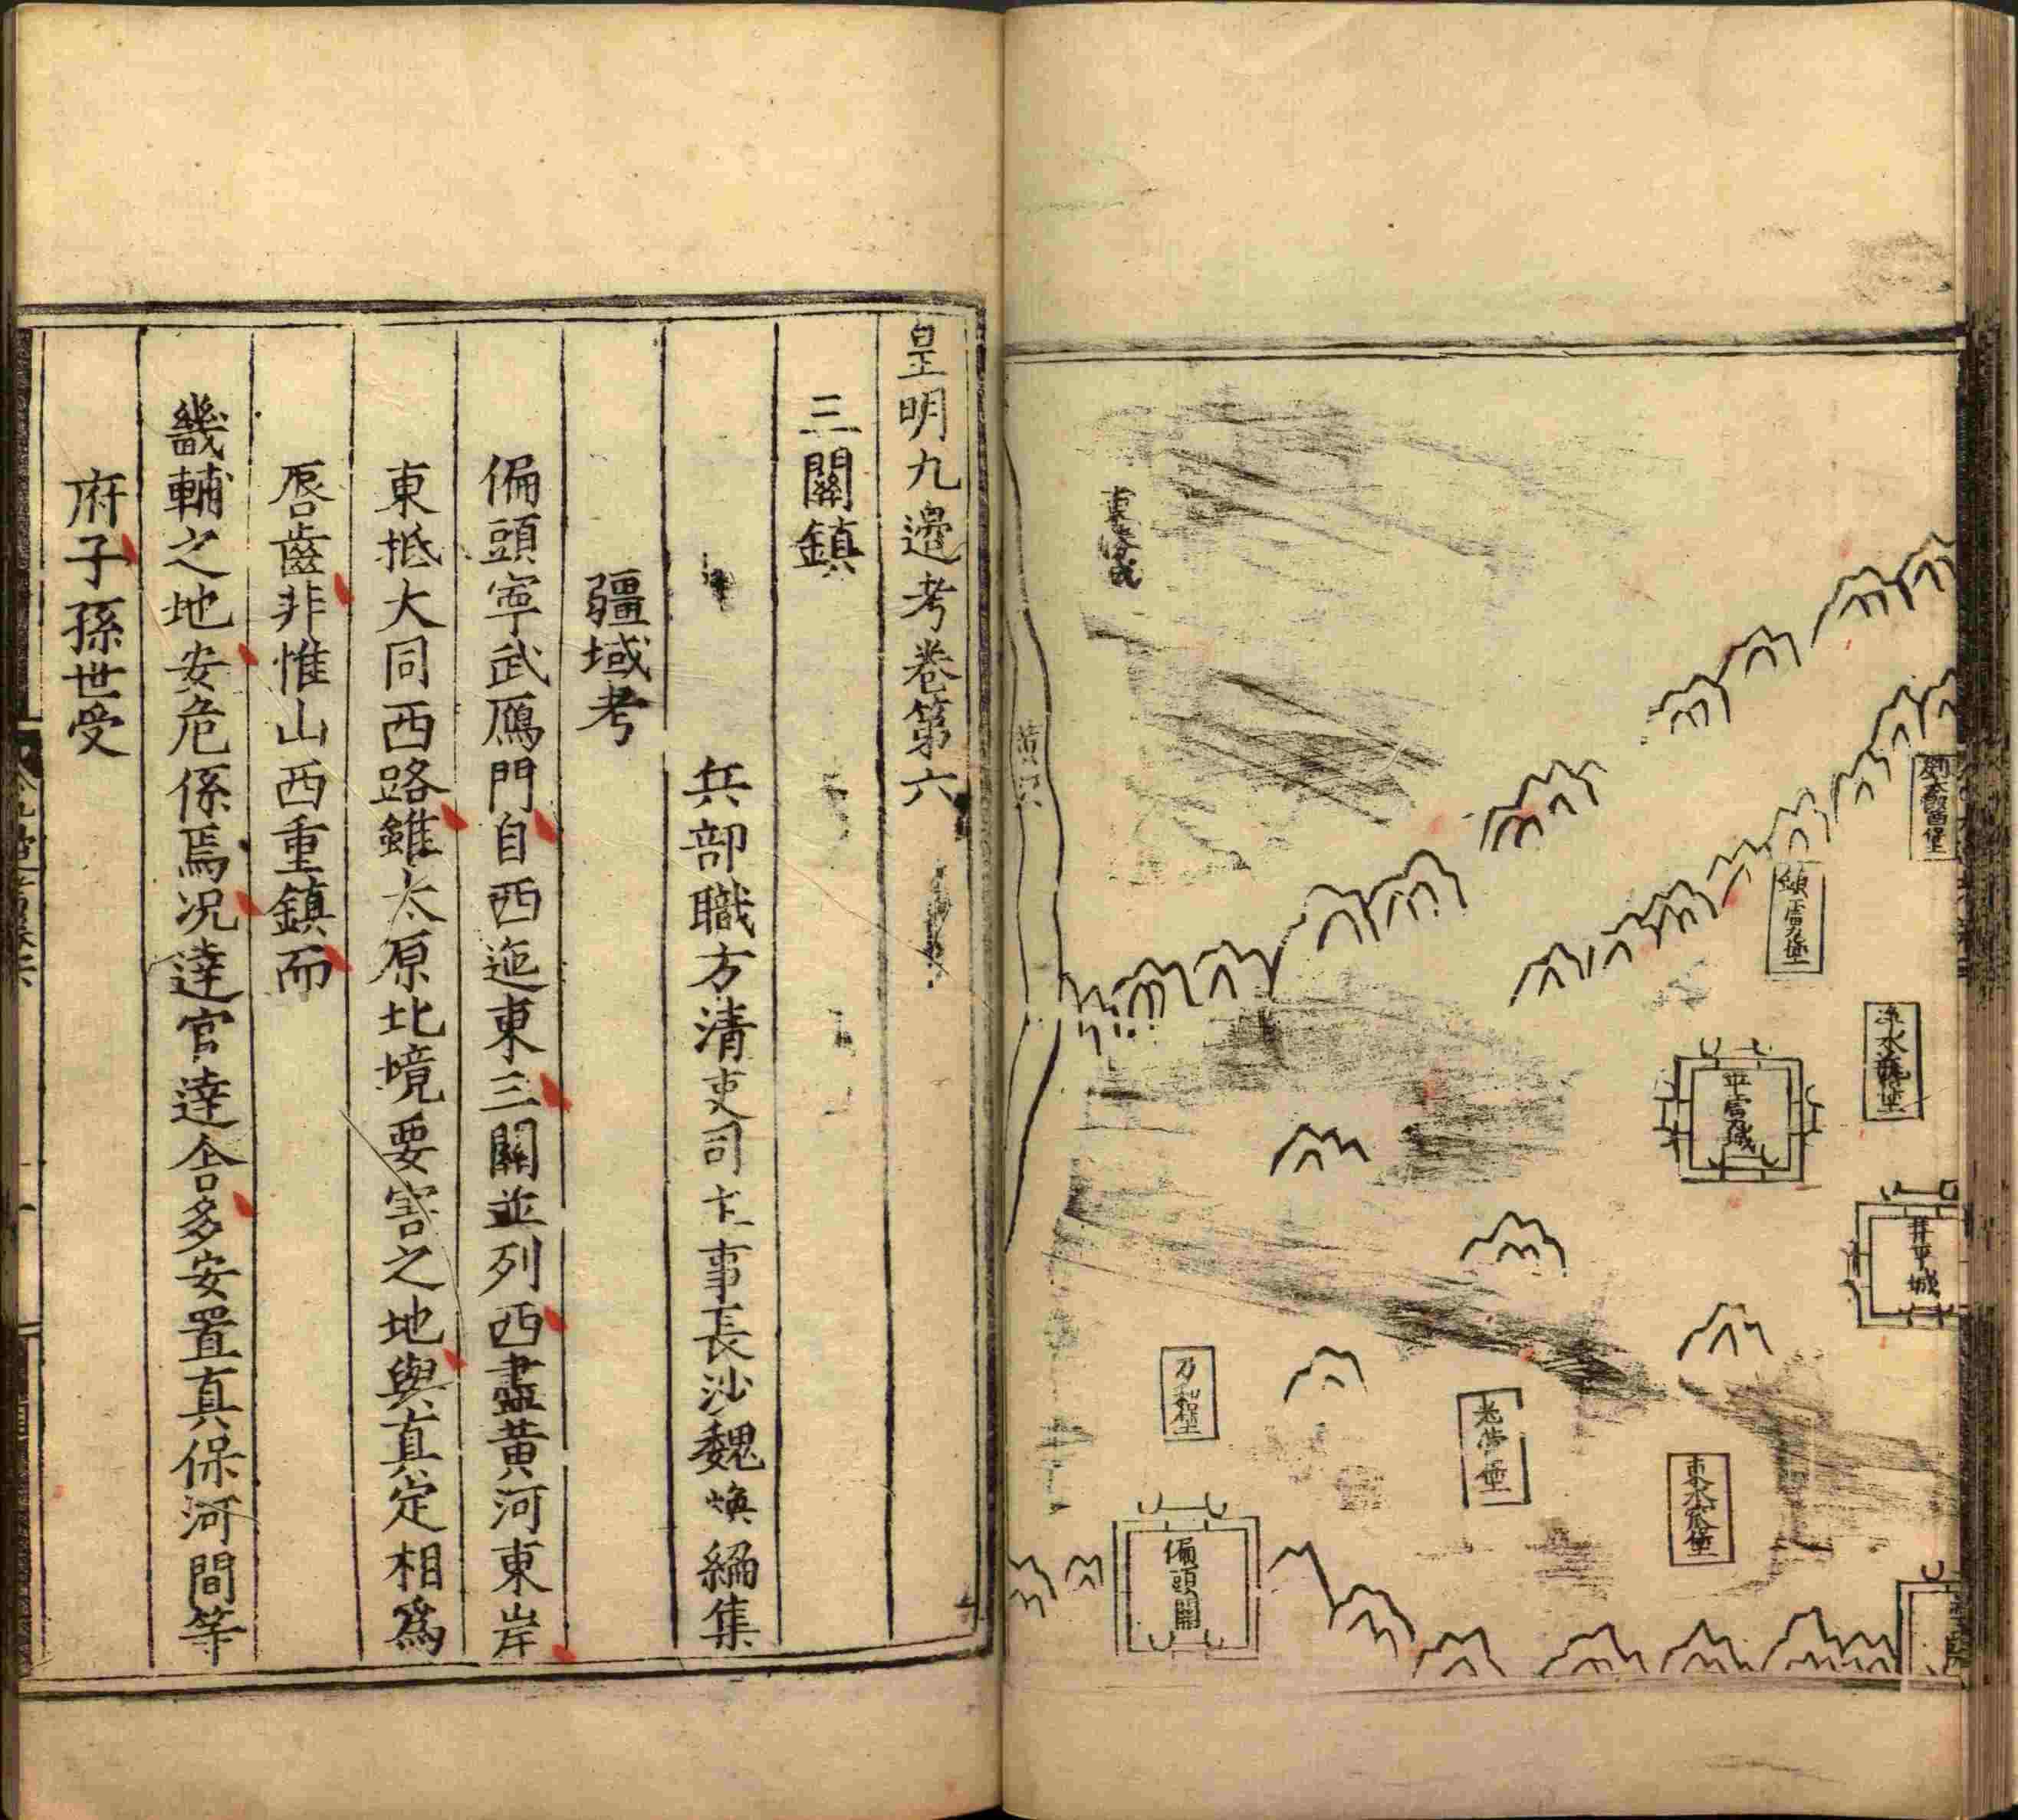 東勝城
黃河
鎮虜堡
滅胡堡
平虜城
井平城
老營堡
東水泉堡
偏頭關
皇明九邊考卷第六
三關鎮
兵部職方清吏司主事長沙魏煥編集
疆域考
偏頭寧武鴈門自西迤東三關並列西盡黃河東岸
東抵大同西路雖太原北境要害之地與真定相爲
唇齒非惟山西重鎮而
畿輔之地安危係焉况達官達舍多安置真保河間等
府子孫世受